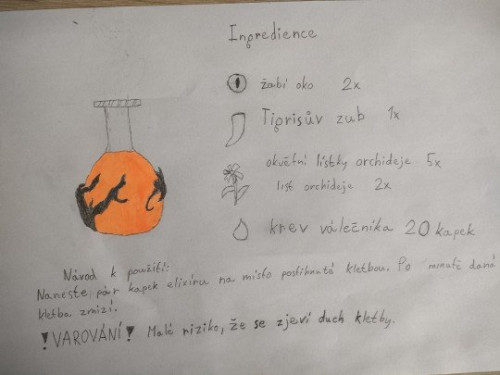 Ingredience
žabí oko 2x
Tiprisův zub 1x
okvětní lístky orchideje 5x
list orchideje 2x
krev válečníka 20 kapek
Návod k použití:
Naneste pár kapek elixíru na místo postihnuté kletbou. Po minutě daná
kletba zmizí.
! VAROVÁNÍ! Malé riziko, že se zjeví duch kletby.